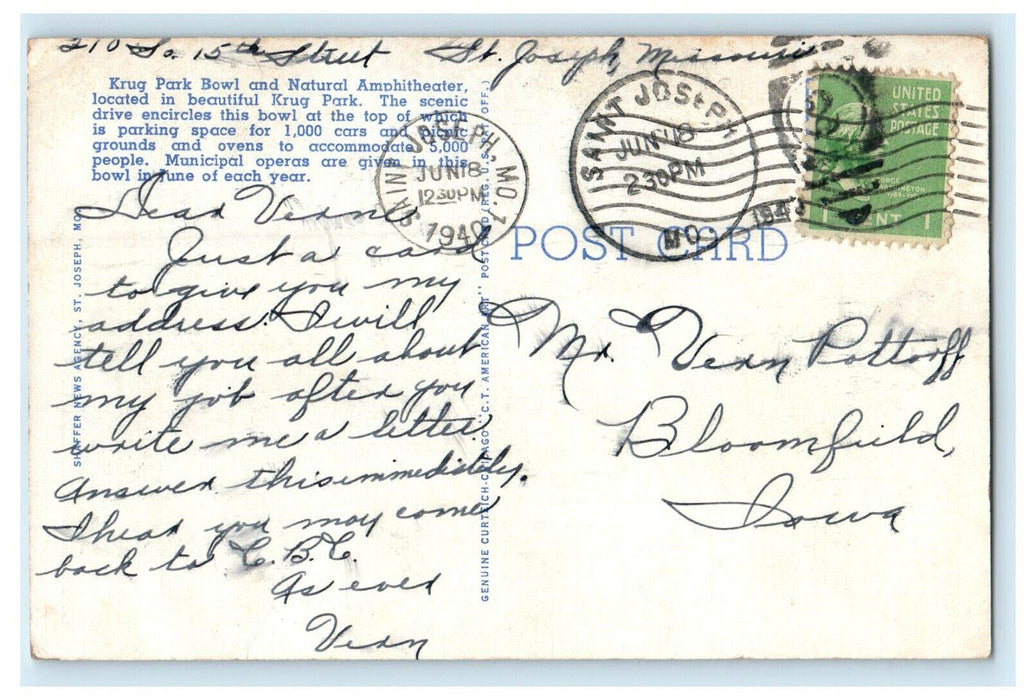 210 So. 15th Street St. Joseph, Missouri
Krug Park Bowl and Natural Amphitheater,
located in beautiful Krug Park. The scenic
drive encircles this bowl at the top of which
is parking space for 1,000 cars and picnic
grounds and ovens to accommodate 5,000
people. Municipal operas are given in this
bowl in June of each year.
SAINT JOSEPH, MO. 3
JUN 18
1230PM
1940
SAINT JOSEPH
JUN 18
230PM
MO.
194
UNITED
STATES
POSTAGE
GEORGE
WASHINGTON
1 CENT 1
POST CARD
Dear Verne
Just a card
to give you my
address. I will
tell you all about
my job after you
write me a letter.
Answer this immediately.
I hear you may come
back to C.B.C.
As ever
Vern
Mr. Vern Pottorff
Bloomfield,
Iowa
SHAFFER NEWS AGENCY, ST. JOSEPH, MO.
GENUINE CURTEICH-CHICAGO "C.T. AMERICAN ART" POST CARD (REG. U.S. PAT. OFF.)